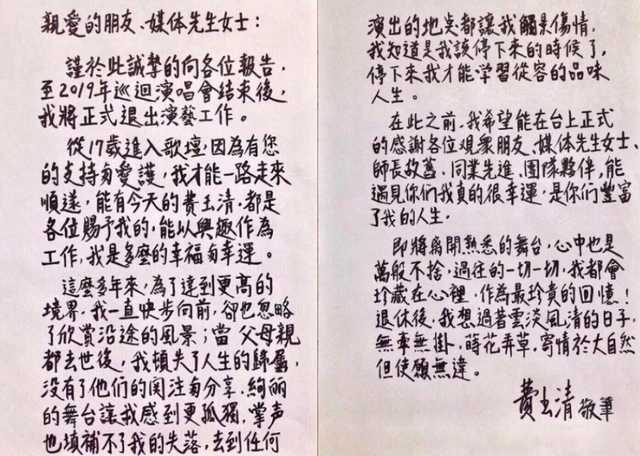 親愛的朋友、媒体先生女士：
謹於此誠摯的向各位報告，
至2019年巡迴演唱會結束後，
我將正式退出演藝工作。
從17歲進入歌壇，因為有您
的支持与愛護，我才能一路走來
順遂，能有今天的費玉清，都是
各位賜予我的，能以興趣作為
工作，我是多麼的幸福与幸運。
這麼多年來，為了達到更高的
境界，我一直快步向前，卻也忽略
了欣賞沿途的風景；當父母親
都去世後，我頓失了人生的歸屬，
沒有了他們的関注与分享，絢麗
的舞台讓我感到更孤獨，掌声
也填補不了我的失落，去到任何
演出的地点都讓我觸景傷情，
我知道是我該停下來的時候了，
停下來我才能学習從容的品味
人生。
在此之前，我希望能在台上正式
的感謝各位观衆朋友、媒体先生女士、
師長故舊、同業先進、團隊夥伴，能
遇見你們我真的很幸運，是你們豐富
了我的人生。
即將离開熟悉的舞台，心中也是
萬般不捨，過往的一切一切，我都會
珍藏在心裡，作為最珍貴的回憶！
退休後，我想過著雲淡風清的日子，
無牽無掛，蒔花弄草，寄情於大自然
但使願無違。
費玉清 敬筆